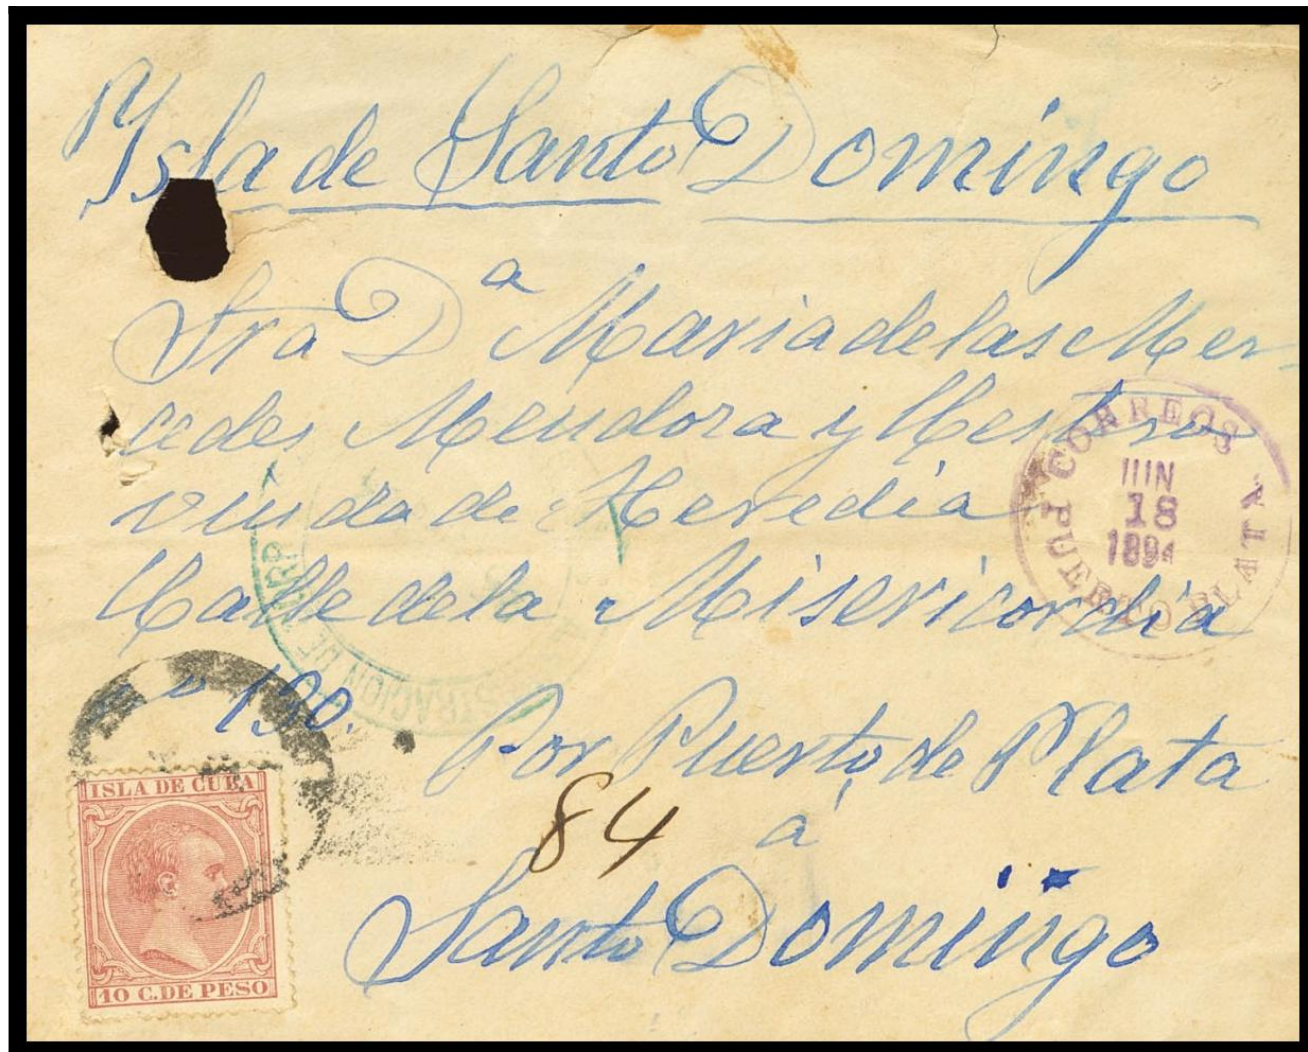 Isla de Santo Domingo
Sra Dª Maria de las Mer-
cedes Mendoza y Mestre
viuda de Heredia
Calle de la Misericordia
nº 190.
Por Puerto de Plata
84
á
Santo Domingo
CORREOS
JUN
18
1894
PUERTO PLATA
STRACION DE
ISLA DE CUBA
10 C. DE PESO